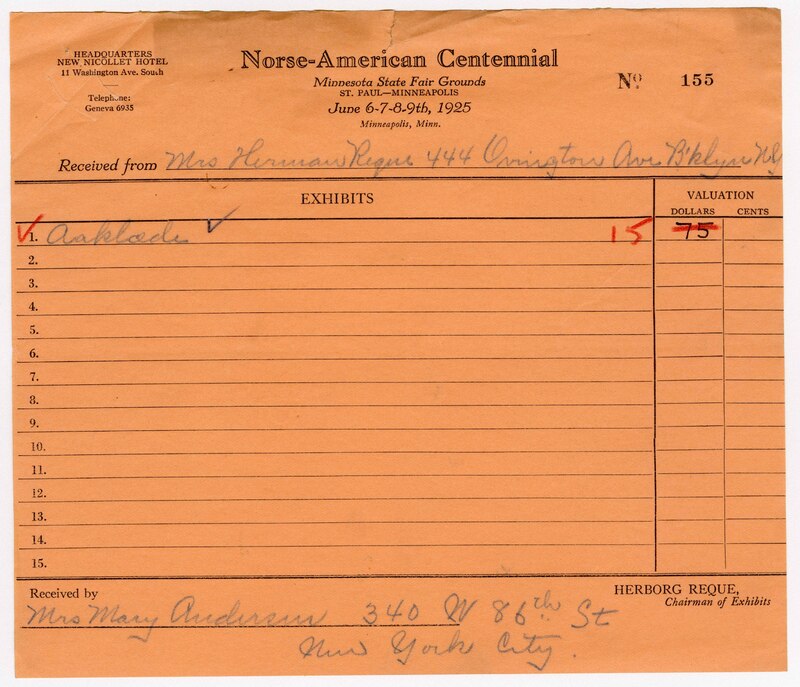 HEADQUARTERS
NEW NICOLLET HOTEL
11 Washington Ave. South
Telephone:
Geneva 6935
Norse-American Centennial
Minnesota State Fair Grounds
ST. PAUL—MINNEAPOLIS
June 6-7-8-9th, 1925
Minneapolis, Minn.
No. 155
Received from Mrs Herman Reque 444 Ovington Ave B'klyn N.Y
EXHIBITS
VALUATION
DOLLARS CENTS
✓ 1. Aaklæde ✓ 15 75
2.
3.
4.
5.
6.
7.
8.
9.
10.
11.
12.
13.
14.
15.
Received by
Mrs Mary Anderson 340 W 86th St
New York City.
HERBORG REQUE,
Chairman of Exhibits